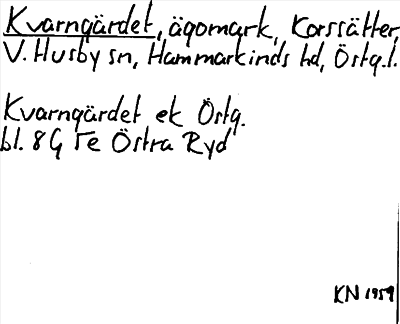 Kvarngärdet, ägomark, Korssätter,
V. Husby sn, Hammarkinds hd, Östg.l.
Kvarngärdet ek Östg.
bl. 8G 5e Östra Ryd
KN 1959